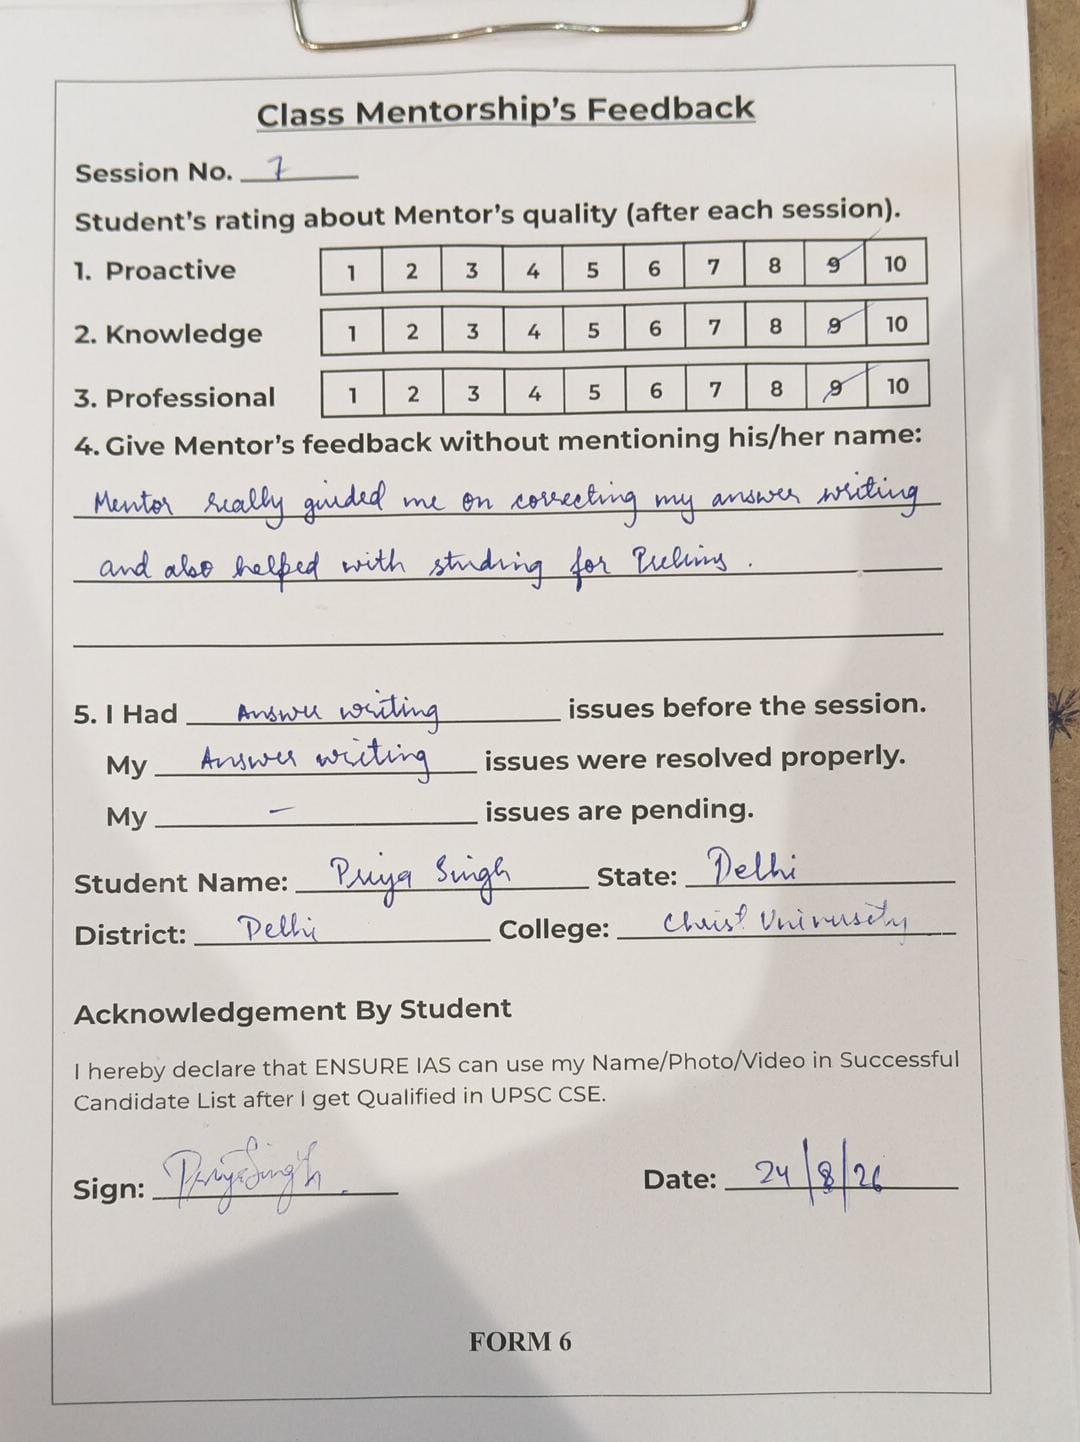 Class Mentorship's Feedback
Session No. 7
Student's rating about Mentor's quality (after each session).
1. Proactive 1 2 3 4 5 6 7 8 9 10
2. Knowledge 1 2 3 4 5 6 7 8 9 10
3. Professional 1 2 3 4 5 6 7 8 9 10
4. Give Mentor's feedback without mentioning his/her name:
Mentor really guided me on correcting my answer writing
and also helped with studing for Prelims.
5. I Had Answer writing issues before the session.
My Answer writing issues were resolved properly.
My - issues are pending.
Student Name: Priya Singh State: Delhi
District: Delhi College: Christ University
Acknowledgement By Student
I hereby declare that ENSURE IAS can use my Name/Photo/Video in Successful
Candidate List after I get Qualified in UPSC CSE.
Sign: PriyaSingh Date: 24/8/26
FORM 6